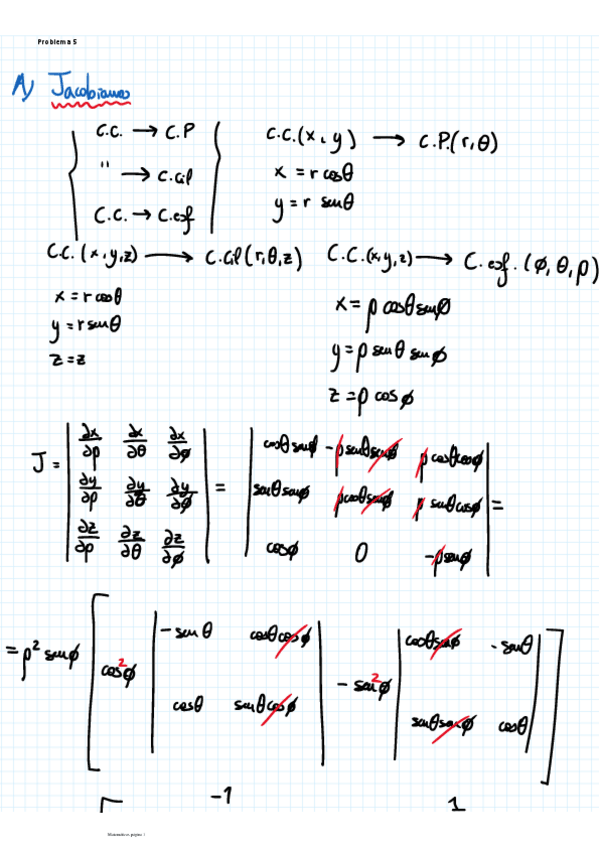 Problema 5
A) Jacobianos
C.C. → C.P
" → C.cil
C.C. → C.esf
C.C.(x,y) → C.P.(r,θ)
x = r cosθ
y = r senθ
C.C.(x,y,z) → C.Cil(r,θ,z)
x = r cosθ
y = r senθ
z = z
C.C.(x,y,z) → C.esf.(ϕ,θ,ρ)
x = ρ cosθ senϕ
y = ρ senθ senϕ
z = ρ cosϕ
J = | ∂x/∂ρ ∂x/∂θ ∂x/∂ϕ | = | cosθ senϕ -ρ senθ senϕ ρ cosθ cosϕ | =
| ∂y/∂ρ ∂y/∂θ ∂y/∂ϕ | | senθ senϕ ρ cosθ senϕ ρ senθ cosϕ |
| ∂z/∂ρ ∂z/∂θ ∂z/∂ϕ | | cosϕ 0 -ρ senϕ |
= ρ² senϕ [ cos²ϕ | -senθ cosθ cosϕ | - sen²ϕ | cosθ senϕ -senθ | ]
| cosθ senθ cosϕ | | senθ senϕ cosθ |
-1 1
Matemáticas página 1